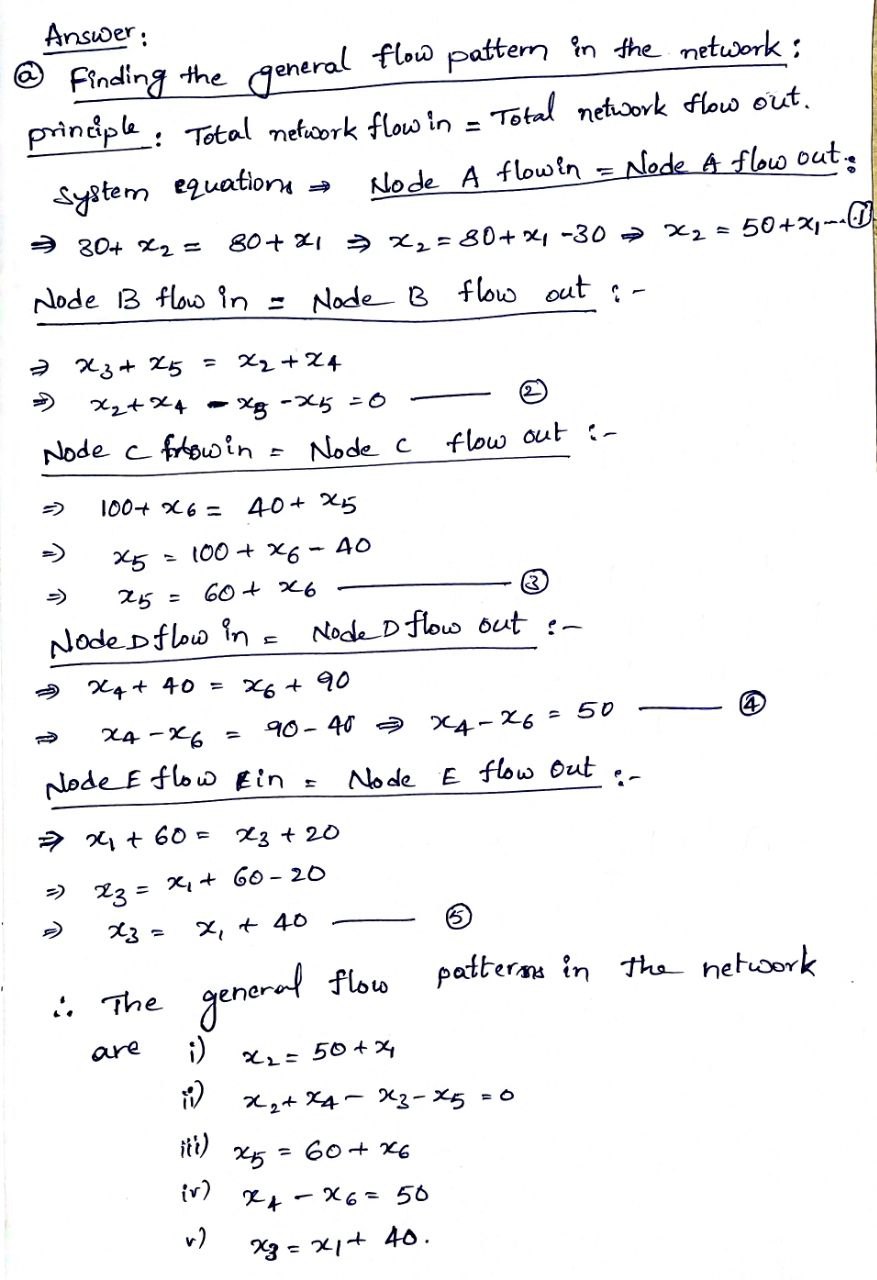 Answer:
ⓐ Finding the general flow pattern in the network:
principle: Total network flow in = Total network flow out.
System equations ⇒ Node A flow in = Node A flow out:
⇒ 30+ x₂ = 80+ x₁ ⇒ x₂ = 80+ x₁ -30 ⇒ x₂ = 50+x₁---①
Node B flow in = Node B flow out :-
⇒ x₃+ x₅ = x₂+x₄
⇒ x₂+x₄ - x₃ -x₅ =0 —— ②
Node C flow in = Node C flow out :-
⇒ 100+ x₆ = 40+ x₅
⇒ x₅ = 100 + x₆ - 40
⇒ x₅ = 60+ x₆ —— ③
Node D flow in = Node D flow out :-
⇒ x₄+ 40 = x₆ + 90
⇒ x₄ - x₆ = 90-40 ⇒ x₄-x₆ = 50 —— ④
Node E flow in = Node E flow Out :-
⇒ x₁ + 60 = x₃ +20
⇒ x₃ = x₁+ 60-20
⇒ x₃ = x₁ + 40 —— ⑤
∴ The general flow patterns in the network
are i) x₂ = 50+x₁
ii) x₂+ x₄ - x₃-x₅ =0
iii) x₅ = 60+ x₆
iv) x₄ - x₆ = 50
v) x₃ = x₁+ 40.